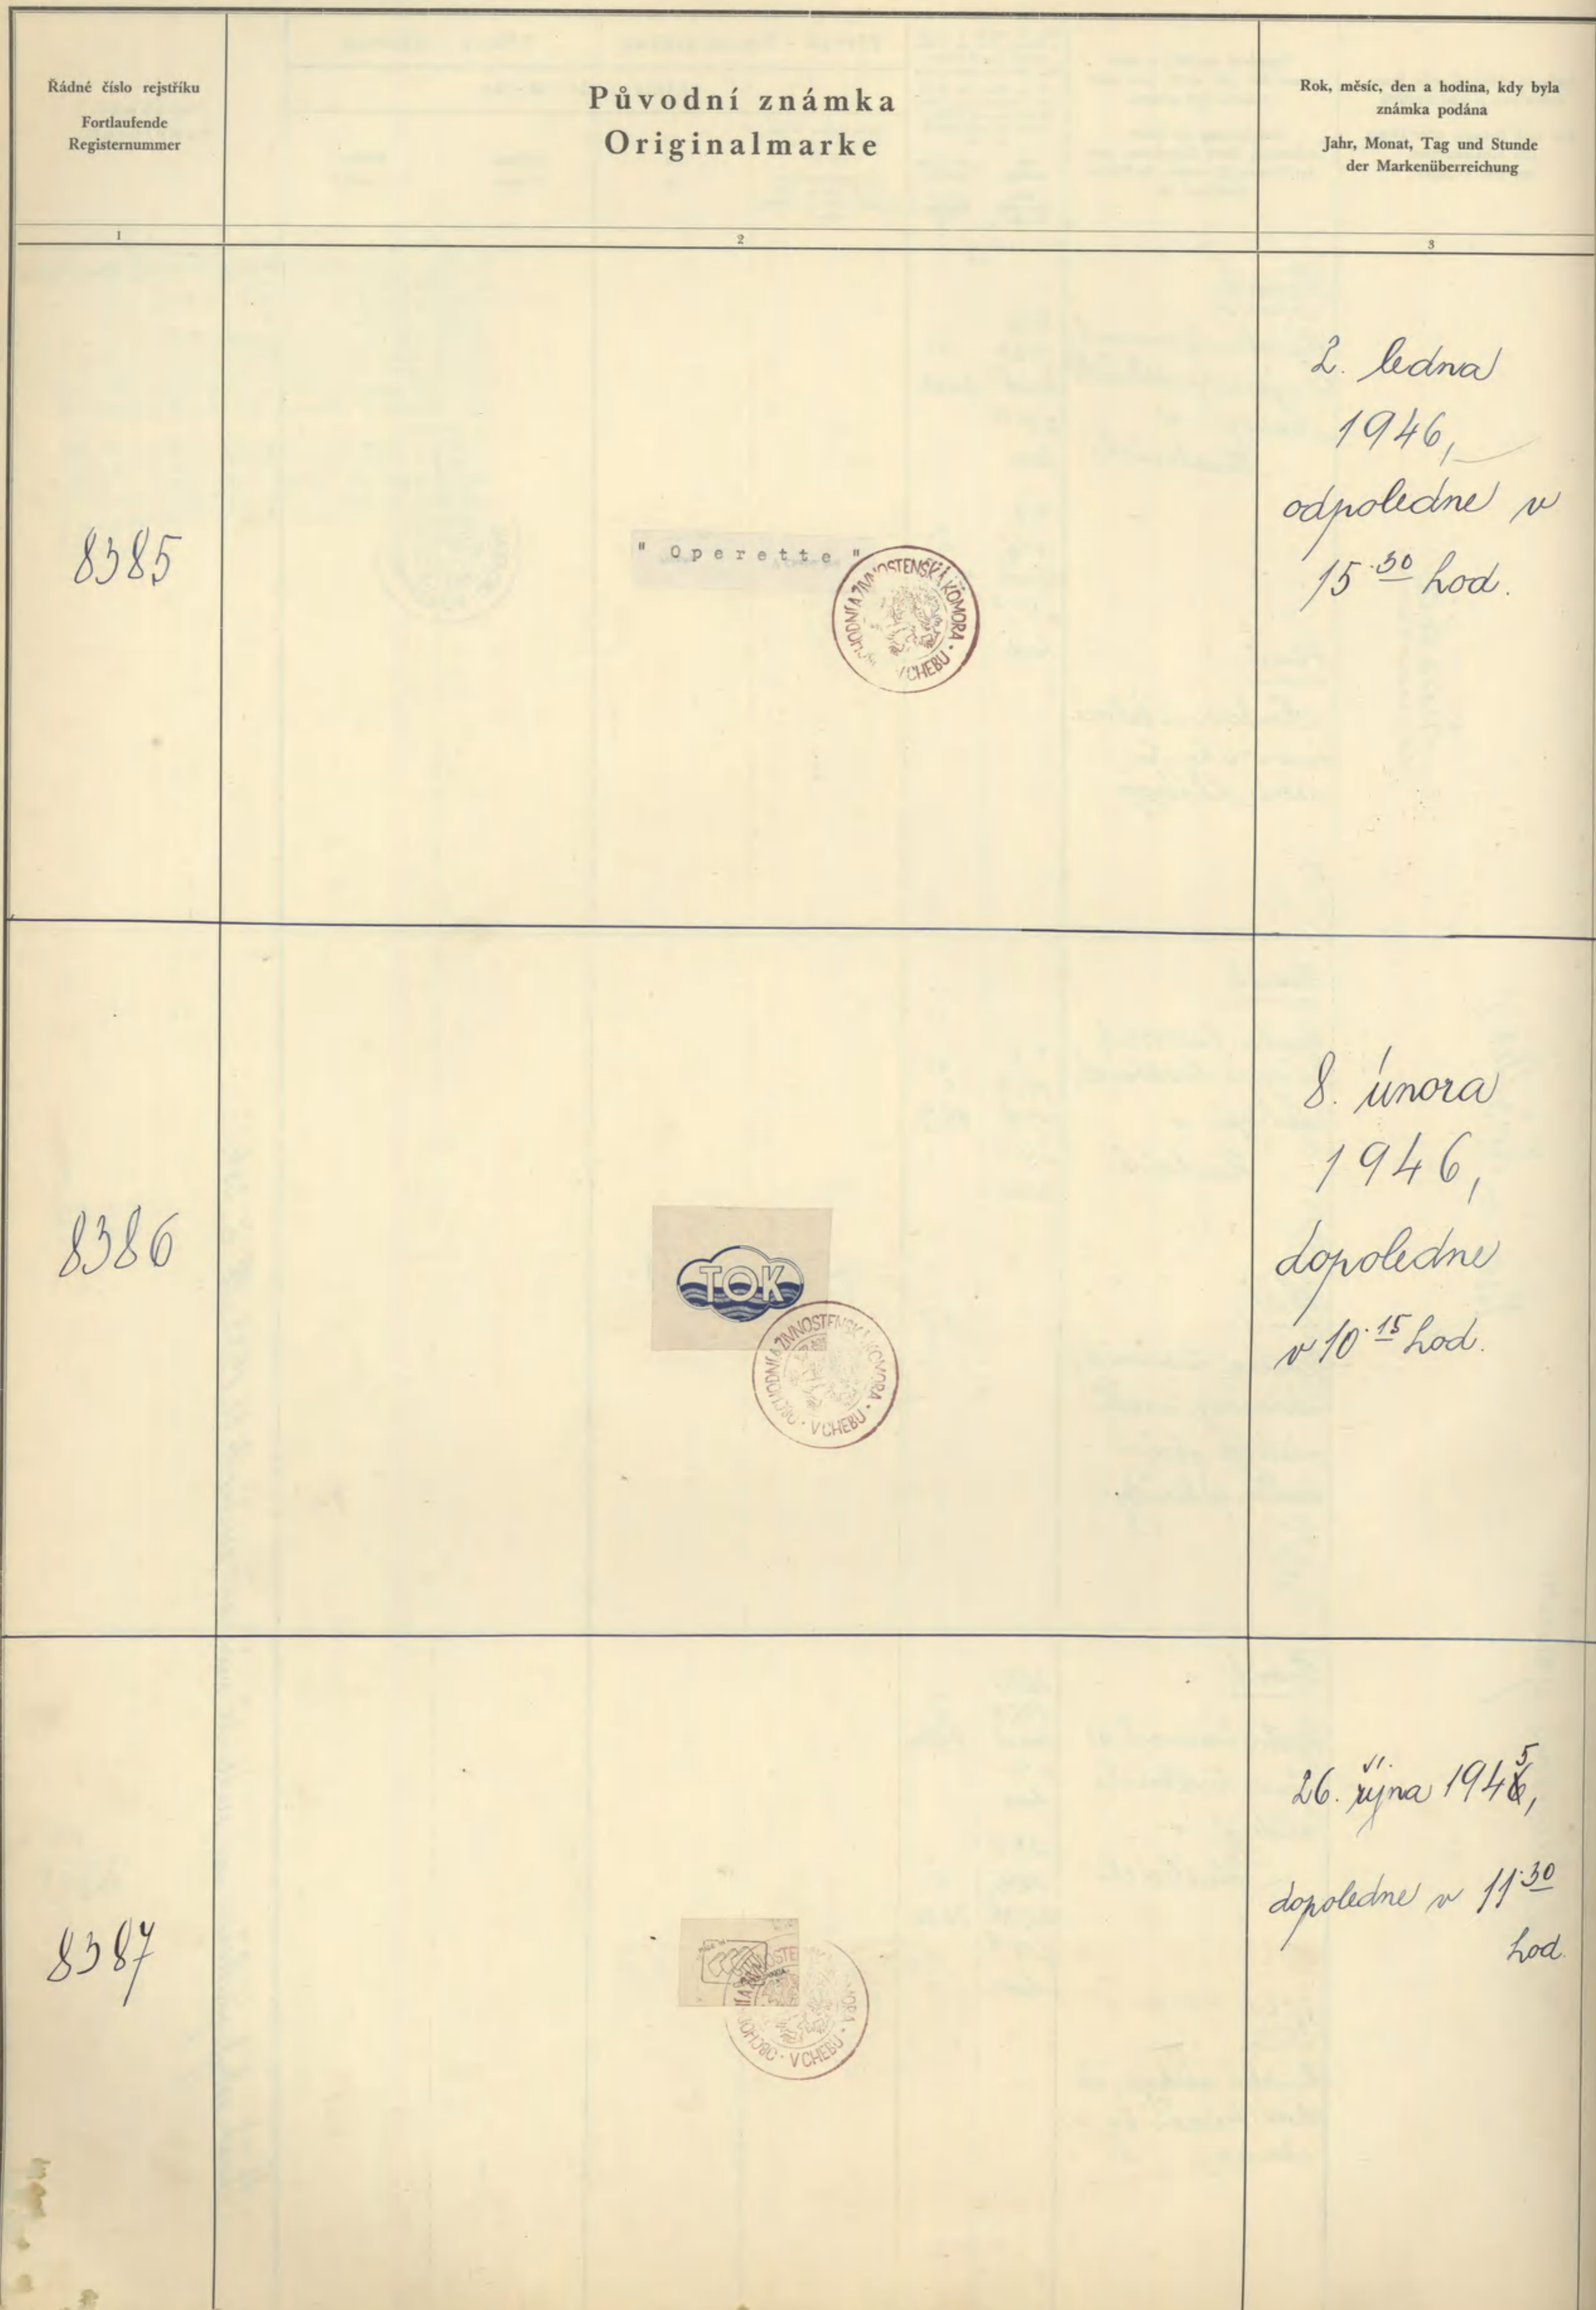 Řádné číslo rejstříku
Fortlaufende
Registernummer
Původní známka
Originalmarke
Rok, měsíc, den a hodina, kdy byla
známka podána
Jahr, Monat, Tag und Stunde
der Markenüberreichung
1
2
3
8385
" Operette "
OBCHODNÍ A ŽIVNOSTENSKÁ KOMORA · V CHEBU ·
2. ledna
1946,
odpoledne v
15·30 hod.
8386
TOK
OBCHODNÍ A ŽIVNOSTENSKÁ KOMORA · V CHEBU ·
8. února
1946,
dopoledne
v 10·15 hod.
8387
OBCHODNÍ A ŽIVNOSTENSKÁ KOMORA · V CHEBU ·
26. října 1945,
dopoledne v 11·30
hod.